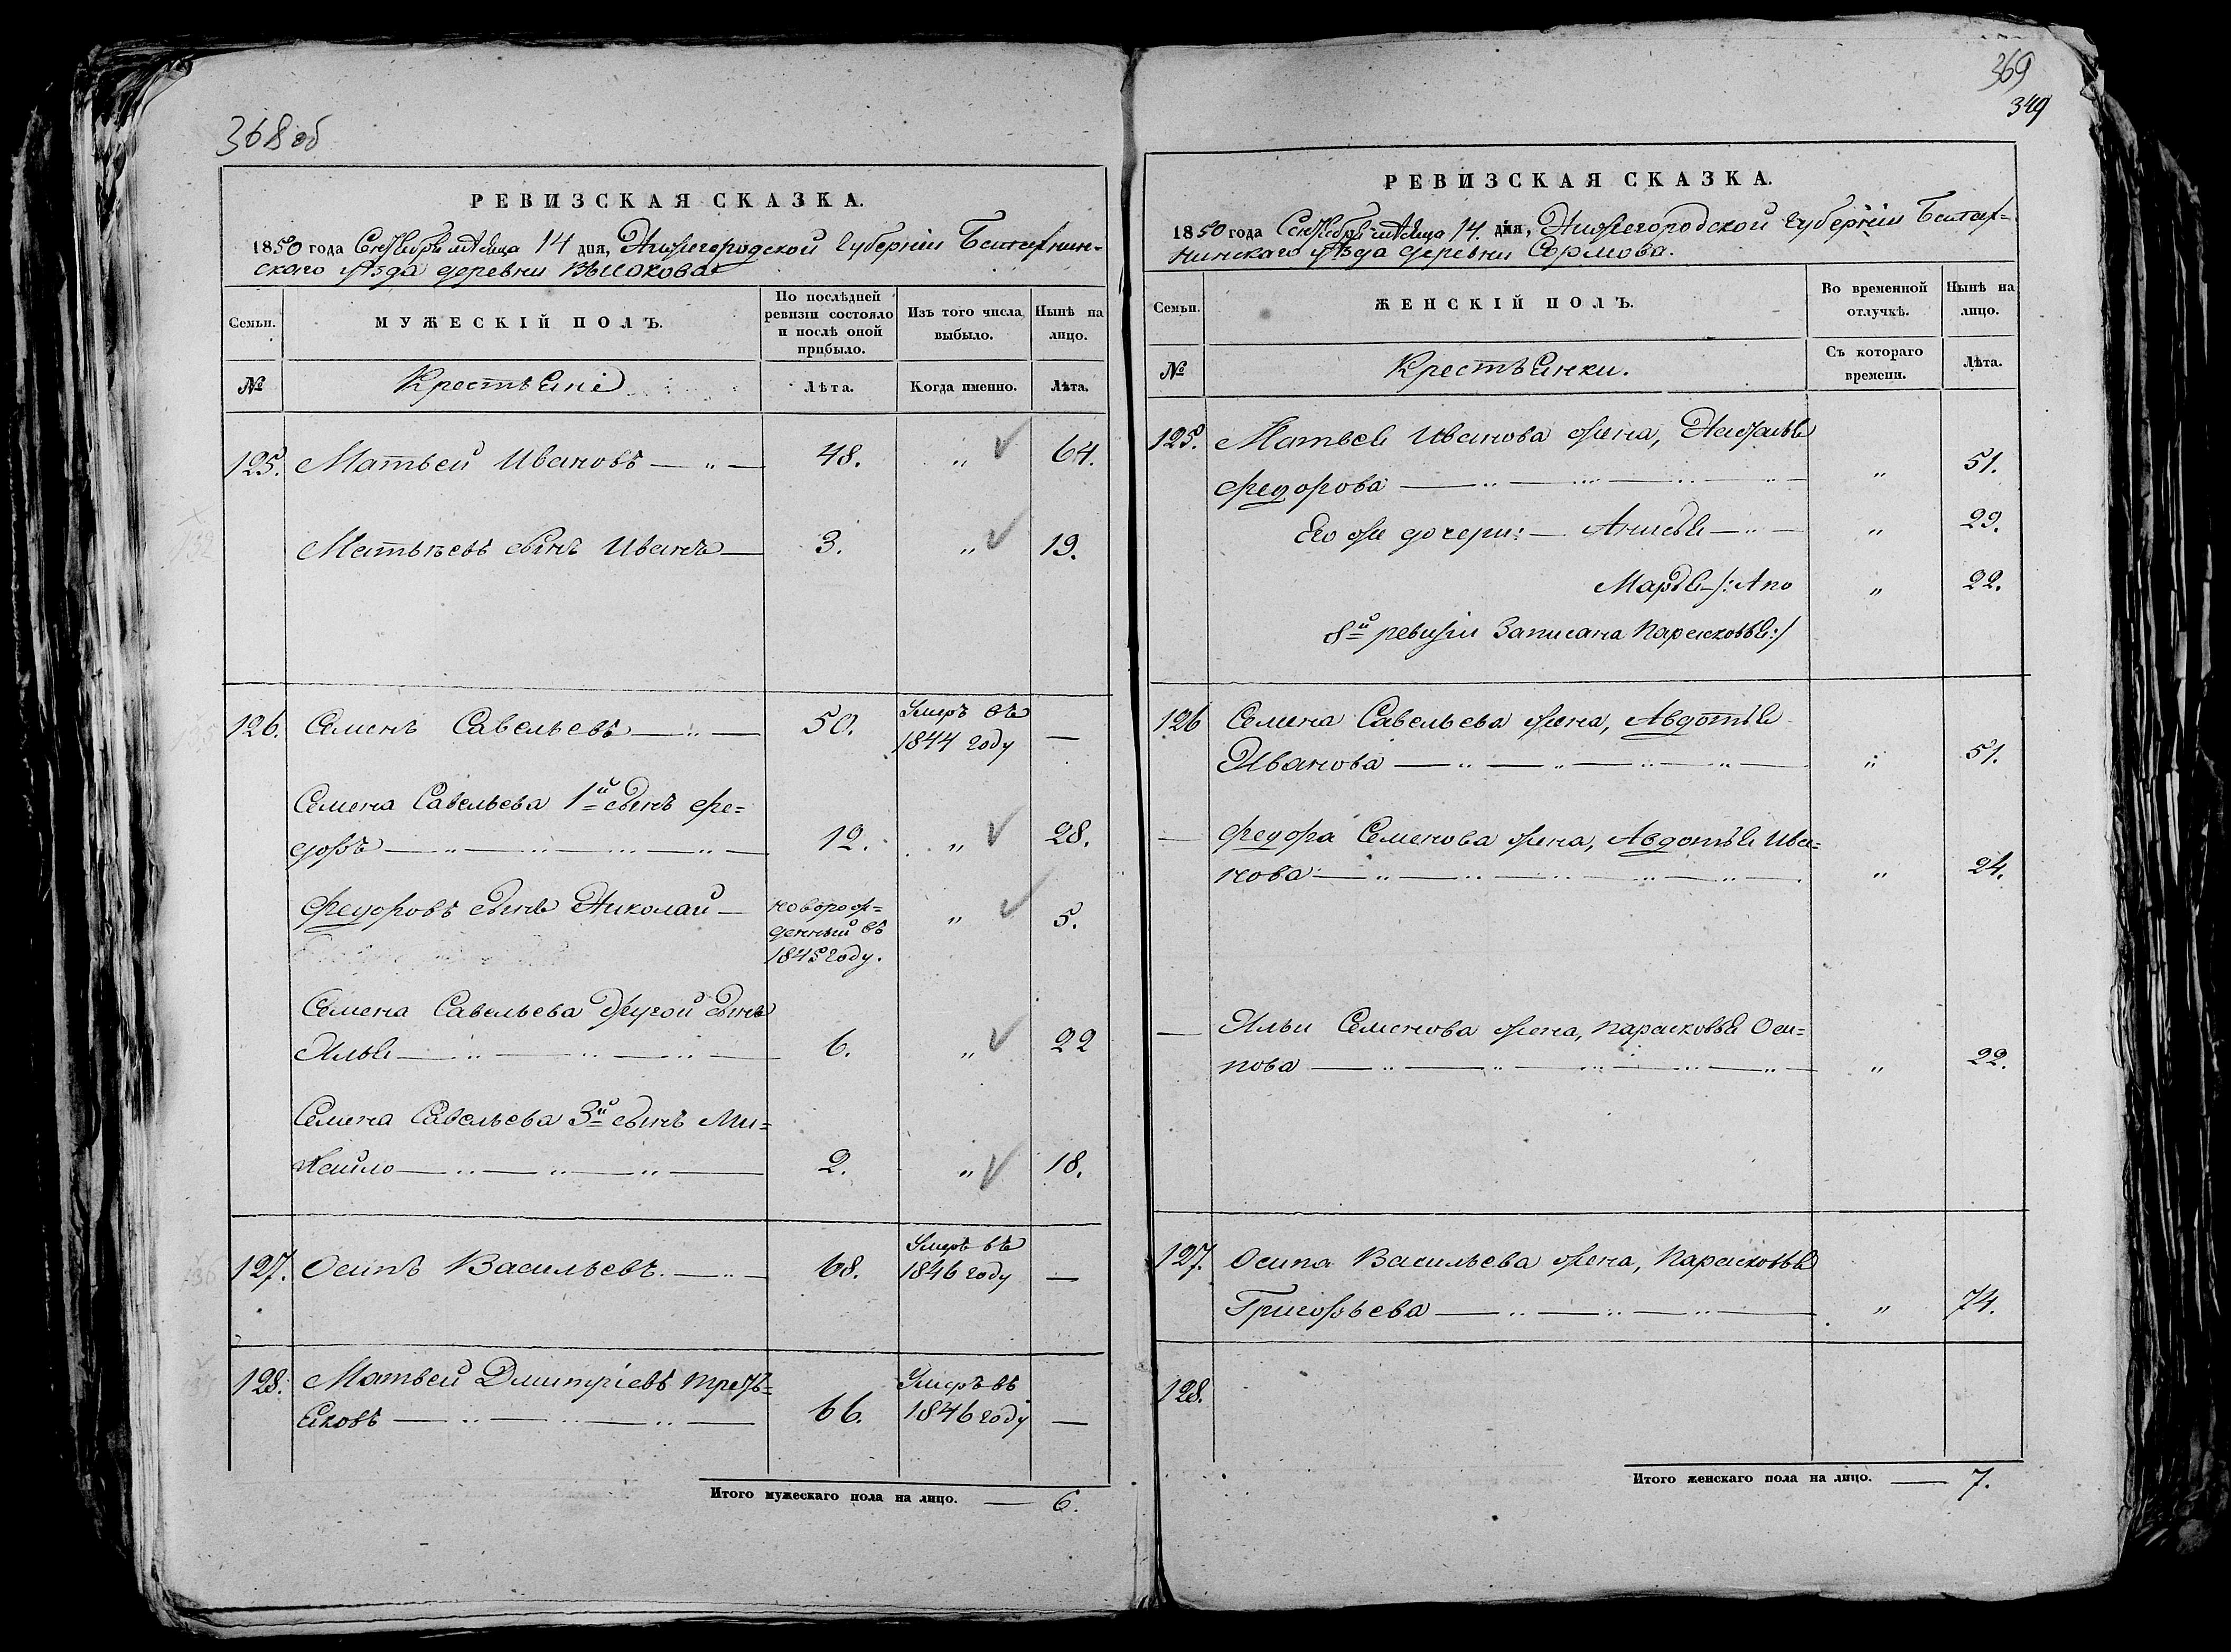 368 об
РЕВИЗСКАЯ СКАЗКА.
1850 года Сентября месяца 14 дня, Нижегородской Губернии Балахнин-
скаго уѣзда деревни Высокова
Семьи.
МУЖЕСКІЙ ПОЛЪ.
По послѣдней ревизіи состояло и послѣ оной прибыло.
Изъ того числа выбыло.
Нынѣ на лицо.
№
Крестьяне
Лѣта.
Когда именно.
Лѣта.
125. Матвей Ивановъ — „ — 48. „ 64.
Матвѣевъ сынъ Иванъ — 3. „ 19.
126. Семенъ Савельевъ — „ — 50. Умеръ въ 1844 году —
Семена Савельева 1й сынъ Фе=
доръ — 12. „ 28.
Федоровъ сынъ Николай — новорож=
денный въ
1845 году. „ 5.
Семена Савельева другой сынъ
Илья — 6. „ 22
Семена Савельева 3й сынъ Ми=
хайло — 2. „ 18.
127. Осипъ Васильевъ. — „ — 68. Умеръ въ 1846 году —
128. Матвей Дмитріевъ Треть=
яковъ — 66. Умеръ въ 1846 году —
Итого мужескаго пола на лицо. — 6.
369
349
РЕВИЗСКАЯ СКАЗКА.
1850 года Сентября месяца 14. дня, Нижегородской Губерніи Балах=
нинскаго уѣзда деревни Сормова.
Семьи.
ЖЕНСКІЙ ПОЛЪ.
Во временной отлучкѣ.
Нынѣ на лицо.
№
Крестьянки.
Съ котораго времени.
Лѣта.
125. Матвея Иванова жена, Наталья
Федорова — „ 51.
Его же дочери: — Анисья — „ 29.
Марья /: А по „ 22.
8й ревизіи записана Парасковья :/
126 Семена Савельева жена, Авдотья
Иванова — „ 51.
— Федора Семенова жена, Авдотья Ива=
нова — „ 24.
— Ильи Семенова жена, Парасковья Оси=
пова — „ 22.
127. Осипа Васильева жена, Парасковья
Григорьева — „ 74.
128.
Итого женскаго пола на лицо. — 7.